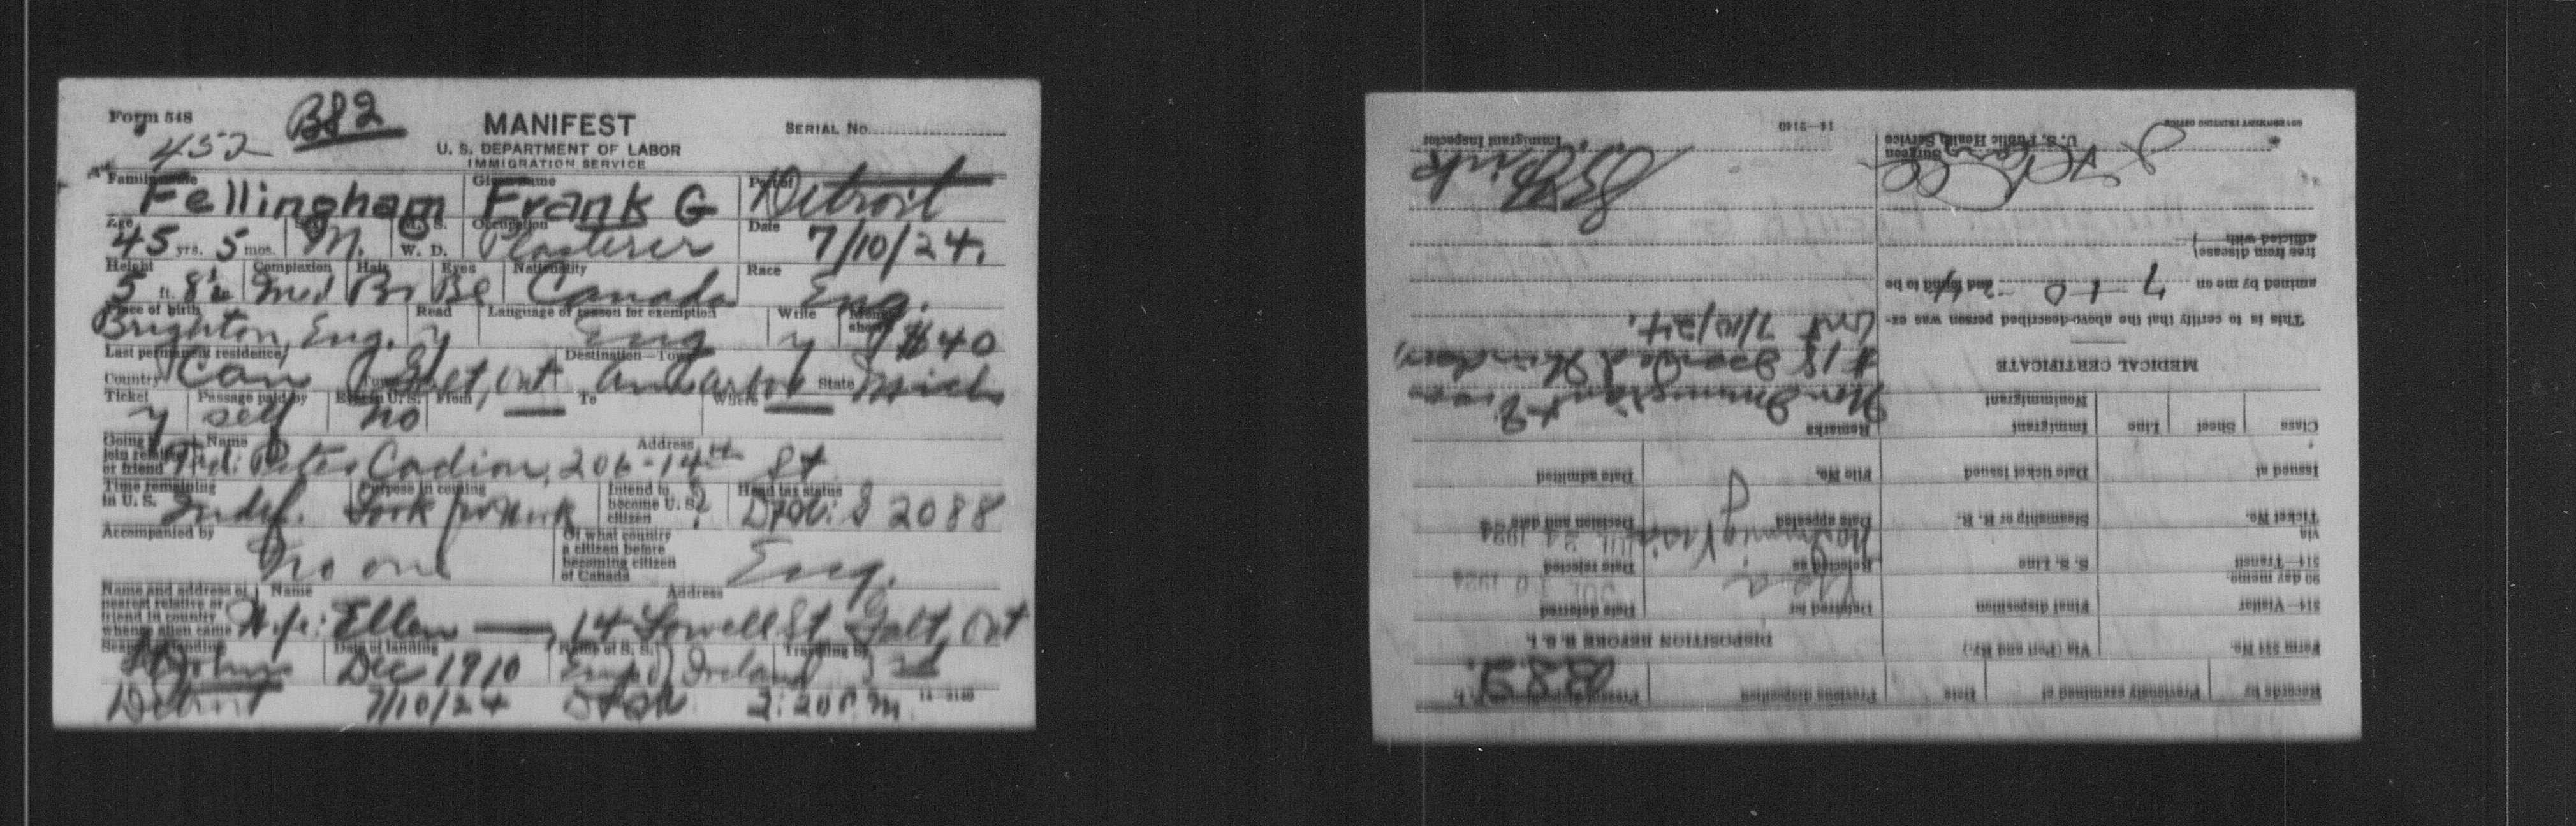 Form 548
B82
452
MANIFEST
U. S. DEPARTMENT OF LABOR
IMMIGRATION SERVICE
SERIAL No.
Family name Fellingham Given name Frank G Port of Detroit
Age 45 yrs. 5 mos. Sex M. M. S. W. D. Occupation Plasterer Date 7/10/24.
Height 5 ft. 8½ in Complexion Med Hair Br Eyes Bl Nationality Canada Race Eng.
Place of birth Brighton, Eng. Read y Language or reason for exemption Eng Write y Money shown $40
Last permanent residence Destination—Town
Country Can Town Galt, Ont Ann Arbor State Mich
Ticket y Passage paid by self Been in U. S. no From — To Where —
Going to join relative or friend Name Address
Peter Cadion, 206-14th St
Time remaining in U. S. Indef. Purpose in coming Look for work Intend to become U. S. citizen ? Head tax status S 2088
Accompanied by no one Of what country a citizen before becoming citizen of Canada Eng.
Name and address of nearest relative or friend in country whence alien came Name Address
Wife: Ellen —, 14 Lowell St Galt, Ont
Seaport of landing St John Date of landing Dec 1910 Name of S. S. Emp of Ireland Traveling by 3rd
Detroit 7/10/24 2:20 P.m. 14—2140
Records by Previously examined at Date Previous disposition Present disposition P. I.
B.S.2.
Form 524 No. Via (Port and Ry.) DISPOSITION BEFORE B. S. I.
514—Visitor Final disposition Deferred for Visa Date deferred JUL 10 1924
90 day memo.
514—Transit S. S. Line Rejected as Date rejected
via
Ticket No. Steamship or R. R. Date appealed Decision and date JUL 24 1924
Issued at Date ticket issued File No. Date admitted
Class Sheet Line Immigrant Nonimmigrant Remarks
Non Immigrant Visa
#18 Issued Windsor,
Ont 7/10/24.
MEDICAL CERTIFICATE
This is to certify that the above-described person was ex-
amined by me on 7-10-24 and found to be
free from disease
afflicted with
Surgeon
U. S. Public Health Service
Immigrant Inspector
14—2140
GOVERNMENT PRINTING OFFICE